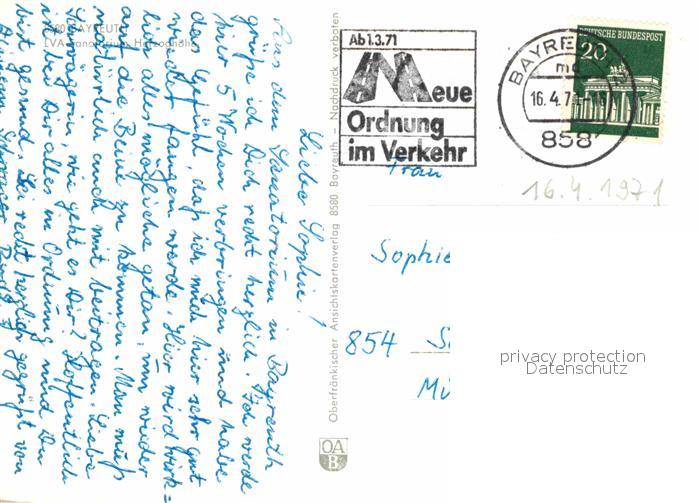 8580 BAYREUTH
LVA-Sanatorium Herzoghöhe
Liebe Sophie!
Aus dem Sanatorium in Bayreuth
grüße ich Dich recht herzlich. Ich werde
hier 5 Wochen verbringen und habe
das Gefühl, daß ich mich hier sehr gut
wieder fangen werde. Hier wird wirk=
lich alles mögliche getan, um wieder
auf die Beine zu kommen. Man muß
natürlich auch mit beitragen. Liebe
wie geht es Dir? Hoffentlich
ist bei Dir alles in Ordnung und Du
bist gesund. Sei recht herzlich gegrüßt von
Deinem Schwager
Oberfränkischer Ansichtskartenverlag 8580 Bayreuth — Nachdruck verboten
OA
B
Ab 1.3.71
Neue
Ordnung
im Verkehr
BAYREU
md
16.4.71-16
858
DEUTSCHE BUNDESPOST
20
16.4.1971
Frau
Sophie
854
Mü
privacy protection
Datenschutz